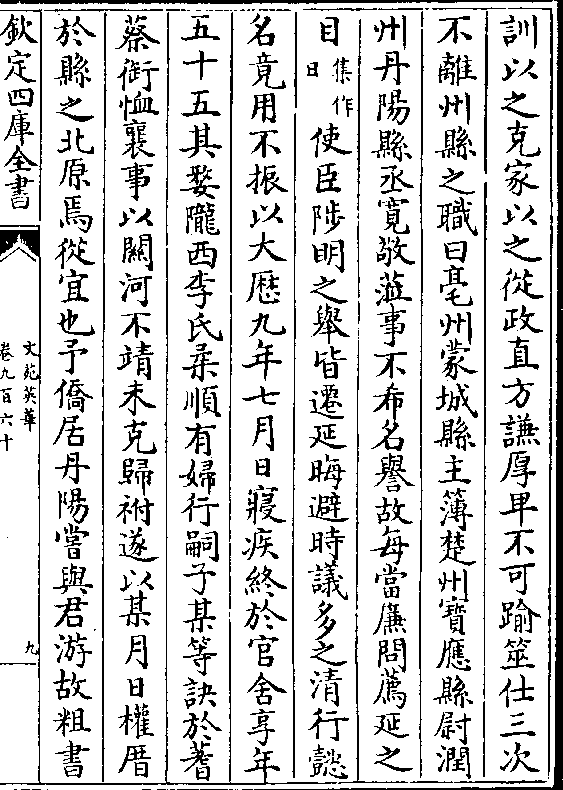 訓以之克家以之從政直方謙厚卑不可踰筮仕三次
不離州縣之職曰亳州蒙城縣主薄楚州寶應縣尉潤
州丹陽縣丞寛敬蒞事不希名譽故每當廉問薦延之
目集作日使臣陟明之舉皆遷延晦避時議多之清行懿
名竟用不振以大厯九年七月日寢疾終於官舍享年
五十五其娶隴西李氏柔順有婦行嗣子某等訣於蓍
蔡銜恤襄事以關河不靖未克歸祔遂以某月日權厝
於縣之北原焉從宜也予僑居丹陽嘗與君游故粗書
欽定四庫全書
文苑英華
卷九百六十
九